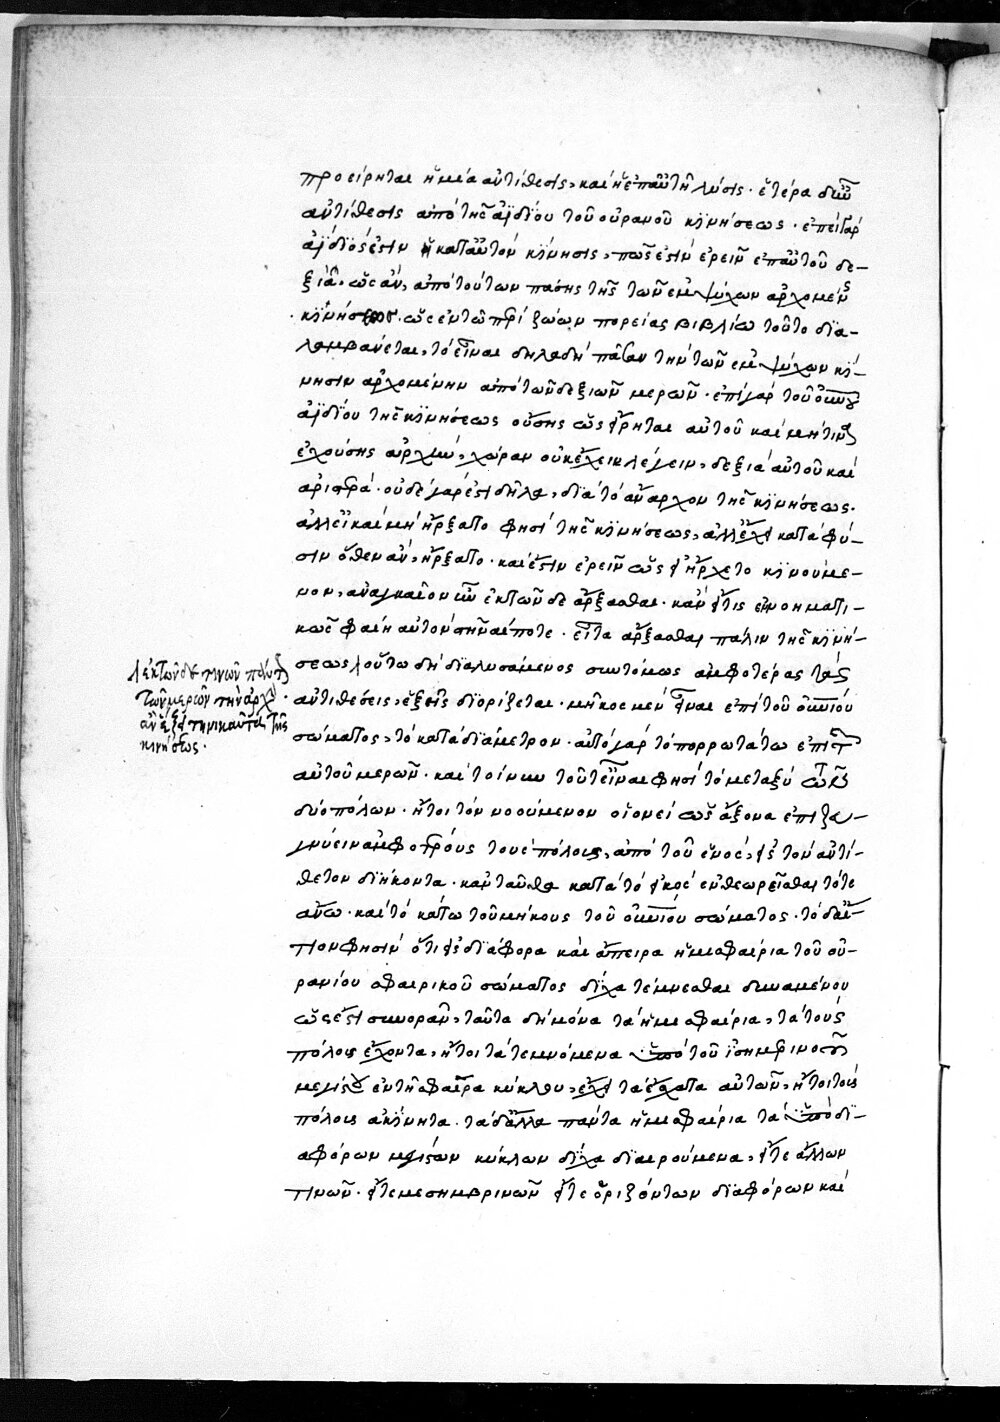 προείρηται ἡ μία ἀντίθεσις, καὶ ἡ ἐπ' αὐτῇ λύσις. ἑτέρα δὲ
ἀντίθεσις ἀπὸ τῆς ἀϊδίου τοῦ οὐρανοῦ κινήσεως. ἐπεὶ γὰρ
ἀΐδιός ἐστιν ἡ κατ' αὐτὸν κίνησις, πῶς ἐστὶν ἐρεῖν ἐπ' αὐτοῦ δε-
ξιὰ. ὡς ἂν, ἀπὸ τούτων πάσης τῆς τῶν ἐμψύχων ἀρχομένης
κινήσεως. ὡς ἐν τῷ περὶ ζώων πορείας βιβλίῳ τοῦτο δια-
λαμβάνεται, τὸ εἶναι δηλαδὴ πᾶσαν τὴν τῶν ἐμψύχων κί-
νησιν ἀρχομένην ἀπὸ τῶν δεξιῶν μερῶν. ἐπὶ γὰρ τοῦ οὐνοῦ
ἀϊδίου τῆς κινήσεως οὔσης ὡς εἴρηται αὐτοῦ καὶ μήτινα
ἐχούσης ἀρχὴν, χώραν οὐκ ἔχει λέγειν, δεξιὰ αὐτοῦ καὶ
ἀριστερά. οὐδὲ γάρ ἐστι δῆλα, διὰ τὸ ἄναρχον τῆς κινήσεως.
ἀλλ' εἰ καὶ μὴ ἤρξατο φησὶ τῆς κινήσεως, ἀλλ' ἔχει κατὰ φύ-
σιν ὅθεν ἂν, ἤρξατο. καὶ ἔστιν ἐρεῖν ὡς εἰ ἤρχετο κινούμε-
νον, ἀναγκαῖον ἦν ἐκ τῶνδε ἄρξασθαι. κἂν εἴ τις ἐννοηματι-
κῶς φαίη αὐτὸν στῆναί ποτε. εἶτα ἄρξασθαι πάλιν τῆς κινή-
σεως, οὕτω δὴ διαλυσάμενος συντόμως ἀμφοτέρας τὰς
ἀντιθέσεις, ἑξῆς διορίζεται. μῆκος μὲν εἶναι ἐπὶ τοῦ οὐνίου
σώματος, τὸ κατὰ διάμετρον. αὐτὸ γὰρ τὸ πορρωτάτω ἐπὶ τῶν
αὐτοῦ μερῶν. καὶ τοίνυν τοῦτ' εἶναι φησὶ τὸ μεταξὺ τῶν
δύο πόλων. ἤτοι τὸν νοούμενον οἱονεὶ ὡς ἄξονα ἐπιζευ-
γνύειν ἀμφοτέρους τοὺς πόλους, ἀπὸ τοῦ ἑνὸς, εἰς τὸν ἀντί-
θετον διήκοντα. κἀνταῦθα κατὰ τὸ εἰκὸς ἐνθεωρεῖσθαι τό τε
ἄνω. καὶ τὸ κάτω τοῦ μήκους τοῦ οὐνίου σώματος. τὸ δ' αἴ-
τιον φησὶν ὅτι εἰς διάφορα καὶ ἄπειρα ἡμισφαίρια τοῦ οὐ-
ρανίου σφαιρικοῦ σώματος δίχα τέμνεσθαι δυναμένου
ὡς ἔστι συνορᾶν, ταῦτα δὴ μόνα τὰ ἡμισφαίρια, τὰ τοὺς
πόλους ἔχοντα, ἤτοι τὰ τεμνόμενα ὑπὸ τοῦ ἰσημερινοῦ
μεγίστου ἐν τῇ σφαίρᾳ κύκλου, ἔχει τὰ ἔσχατα αὐτῶν, ἤτοι τοὺς
πόλους ἀκίνητα. τὰ δ' ἄλλα πάντα ἡμισφαίρια τὰ ὑπὸ δι-
αφόρων μεγίστων κύκλων δίχα διαιρούμενα, εἴτε ἄλλων
τινῶν. εἴτε μεσημβρινῶν εἴτε ὁριζόντων διαφόρων καὶ
τῶν μερῶν τὴν ἀρχὴν
κινήσεως.